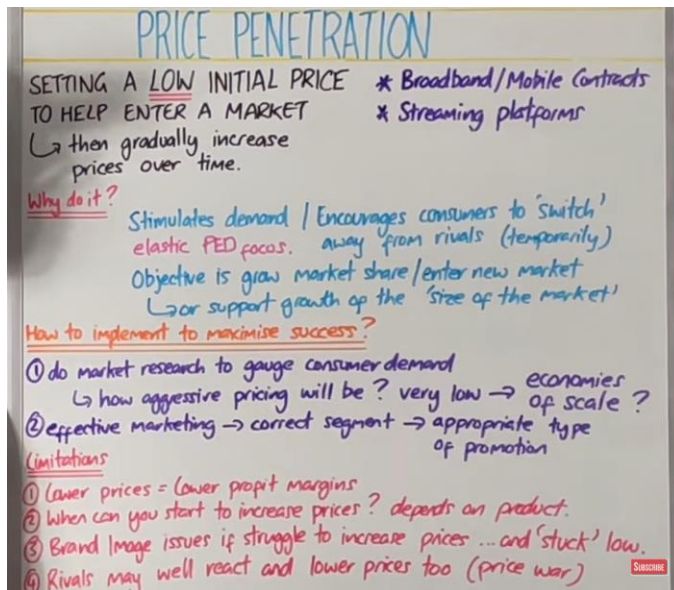 PRICE PENETRATION
SETTING A LOW INITIAL PRICE
TO HELP ENTER A MARKET
↳ then gradually increase
prices over time.
* Broadband/Mobile Contracts
* Streaming platforms
Why do it?
Stimulates demand / Encourages consumers to 'switch'
elastic PED focus. away from rivals (temporarily)
Objective is grow market share/enter new market
↳ or support growth of the 'size of the market'
How to implement to maximise success?
① do market research to gauge consumer demand
↳ how aggressive pricing will be? very low → economies of scale?
② effective marketing → correct segment → appropriate type
of promotion
Limitations
① Lower prices = lower profit margins
② When can you start to increase prices? depends on product.
③ Brand Image issues if struggle to increase prices ... and 'stuck' low.
④ Rivals may well react and lower prices too (price war)
SUBSCRIBE